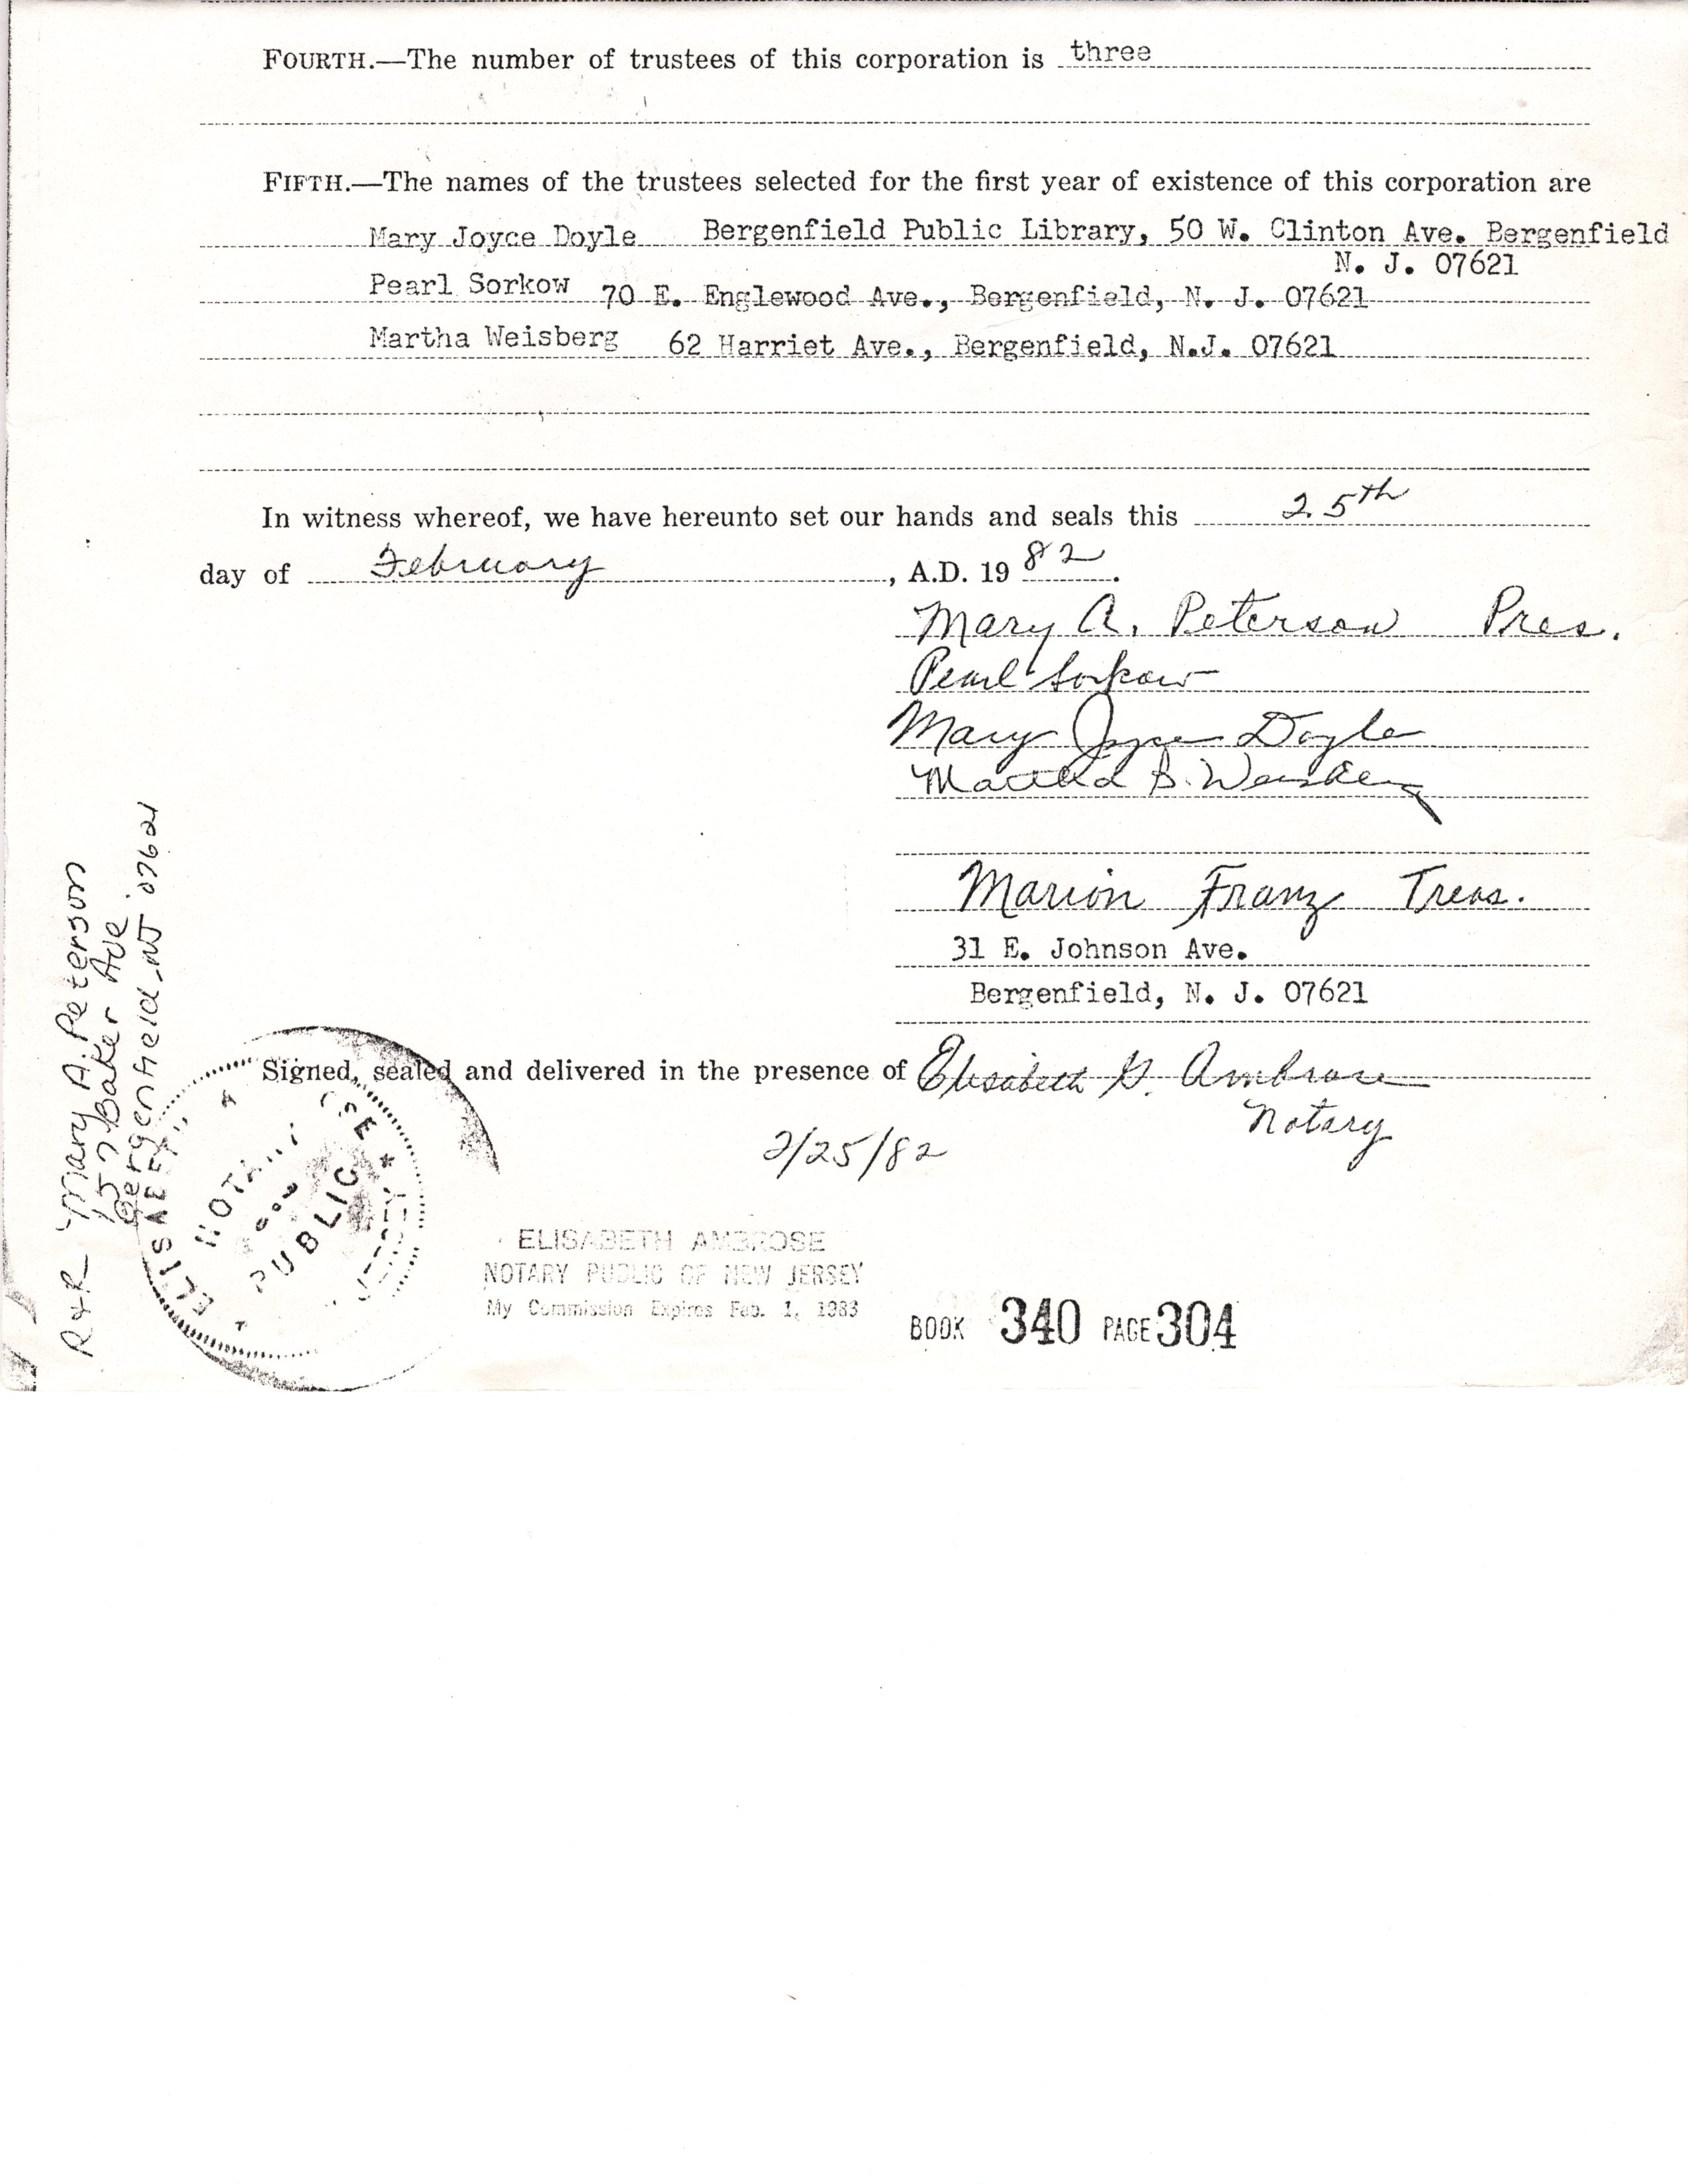 FOURTH.—The number of trustees of this corporation is three
FIFTH.—The names of the trustees selected for the first year of existence of this corporation are
Mary Joyce Doyle Bergenfield Public Library, 50 W. Clinton Ave. Bergenfield
N. J. 07621
Pearl Sorkow 70 E. Englewood Ave., Bergenfield, N. J. 07621
Martha Weisberg 62 Harriet Ave., Bergenfield, N.J. 07621
In witness whereof, we have hereunto set our hands and seals this 25th
day of February, A.D. 1982.
Mary A. Peterson Pres.
Pearl Sorkow
Mary Joyce Doyle
Martha B. Weisberg
Marion Franz Treas.
31 E. Johnson Ave.
Bergenfield, N. J. 07621
Signed, sealed and delivered in the presence of Elisabeth G. Ambrose
Notary
2/25/82
R&R Mary A. Peterson
157 Baker Ave
Bergenfield NJ 07621
NOTARY
PUBLIC
ELISABETH AMBROSE
NOTARY PUBLIC OF NEW JERSEY
My Commission Expires Feb. 1, 1983
BOOK 340 PAGE 304